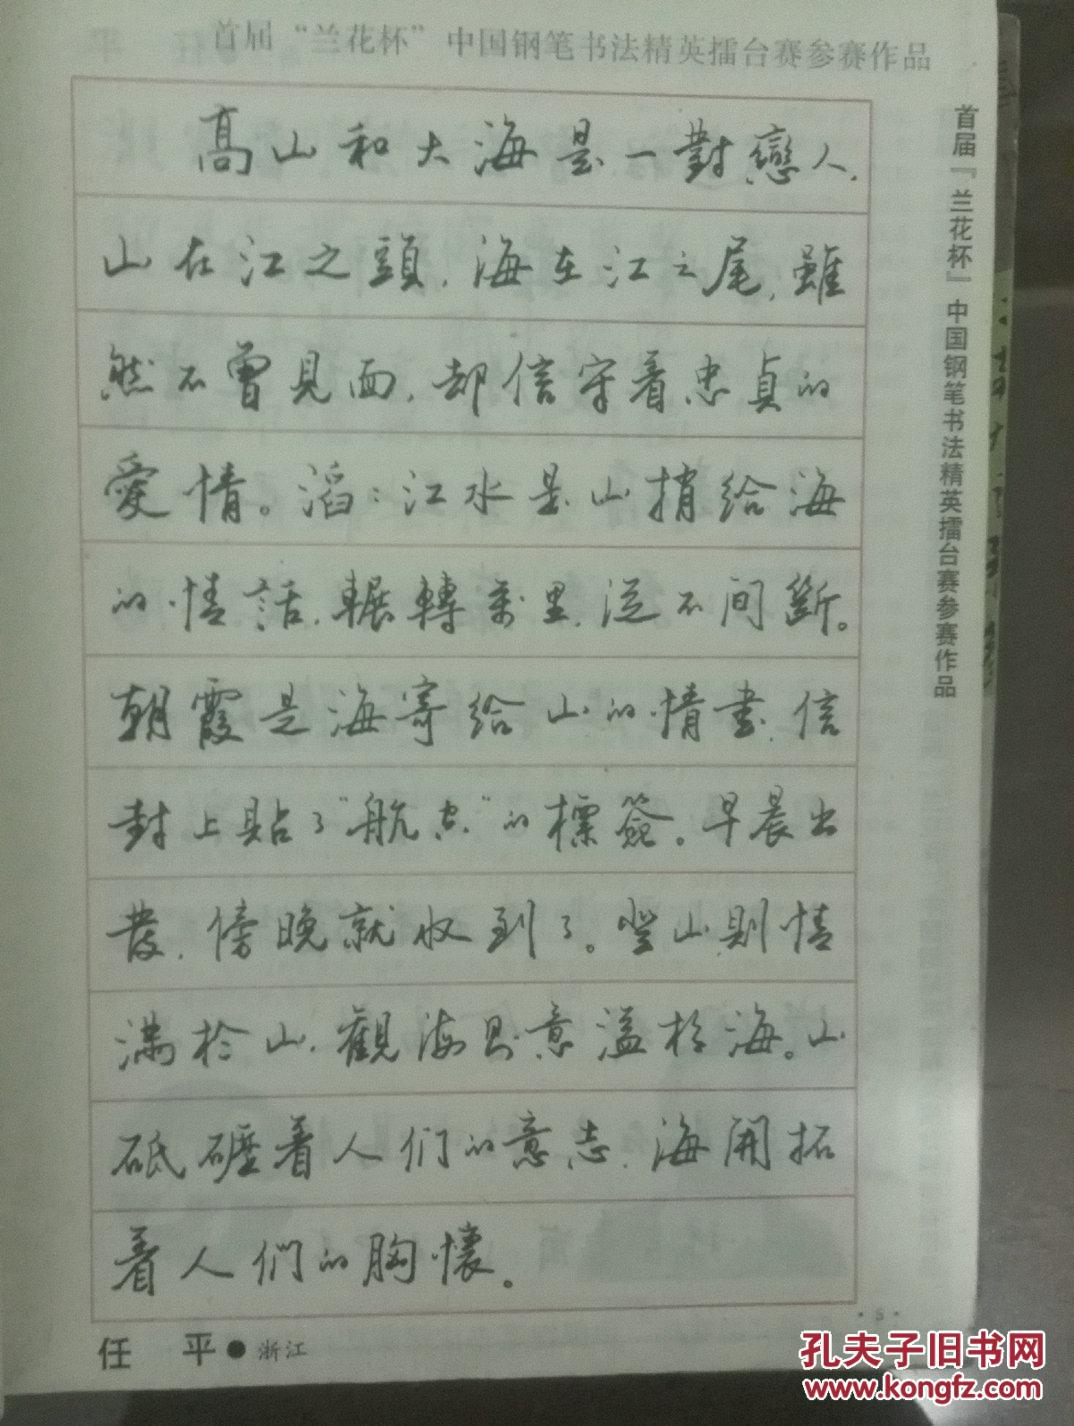 首届“兰花杯”中国钢笔书法精英擂台赛参赛作品
高山和大海是一對戀人，
山在江之頭，海在江之尾，雖
然不曾見面，却信守着忠貞的
愛情。滔滔江水是山捎給海
的情話，輾轉萬里，從不间斷。
朝霞是海寄給山的情書，信
封上貼了“航空”的標簽。早晨出
發，傍晚就收到了。登山則情
滿於山，觀海则意溢於海。山
砥礪着人们的意志，海開拓
着人們的胸懷。
任 平●浙江
·5·
首届『兰花杯』中国钢笔书法精英擂台赛参赛作品
孔夫子旧书网
www.kongfz.com